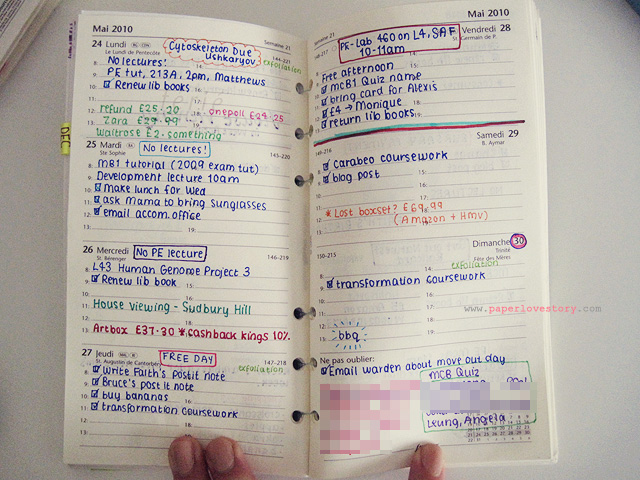 Mai 2010
24 Lundi
Semaine 21
Le Lundi de Pentecôte
144-221
Cytoskeleton Due
Ushkaryov
exfoliation
No lectures!
PE tut, 213A, 2pm, Matthews
Renew lib books
refund £25.20
onepoll £29.25
Zara £29.99
Waitrose £2.something
25 Mardi
Ste Sophie
No lectures!
145-220
MB1 tutorial (2009 exam tut)
Development lecture 10am
make lunch for Wed
ask Mama to bring sunglasses
email accom. office
26 Mercredi
St. Bérenger
No PE lecture
146-219
L43 Human Genome Project 3
Renew lib book
House viewing - Sudbury Hill
Artbox £37.30 * cashback kings 10%
27 Jeudi
St. Augustin de Cantorbéry
FREE DAY
147-218
exfoliation
Write Faith's Postit note
Bruce's post it note
buy bananas
transformation coursework
DEC
Mai 2010
Semaine 21
Vendredi 28
St Germain de P.
PE-Lab 460 on L4, SAF
10-11am
Free afternoon
MCB1 Quiz name
bring card for Alexis
£4 → Monique
return lib books
Samedi 29
B. Aymar
149-216
Carabeo coursework
blog post
* Lost boxset? £69.99
(Amazon + HMV)
Dimanche 30
Trinité
Fête des Mères
150-215
exfoliation
transformation coursework
www.paperlovestory.com
bbq
Ne pas oublier:
Email warden about move out day
MCB Quiz
Leung, Angela